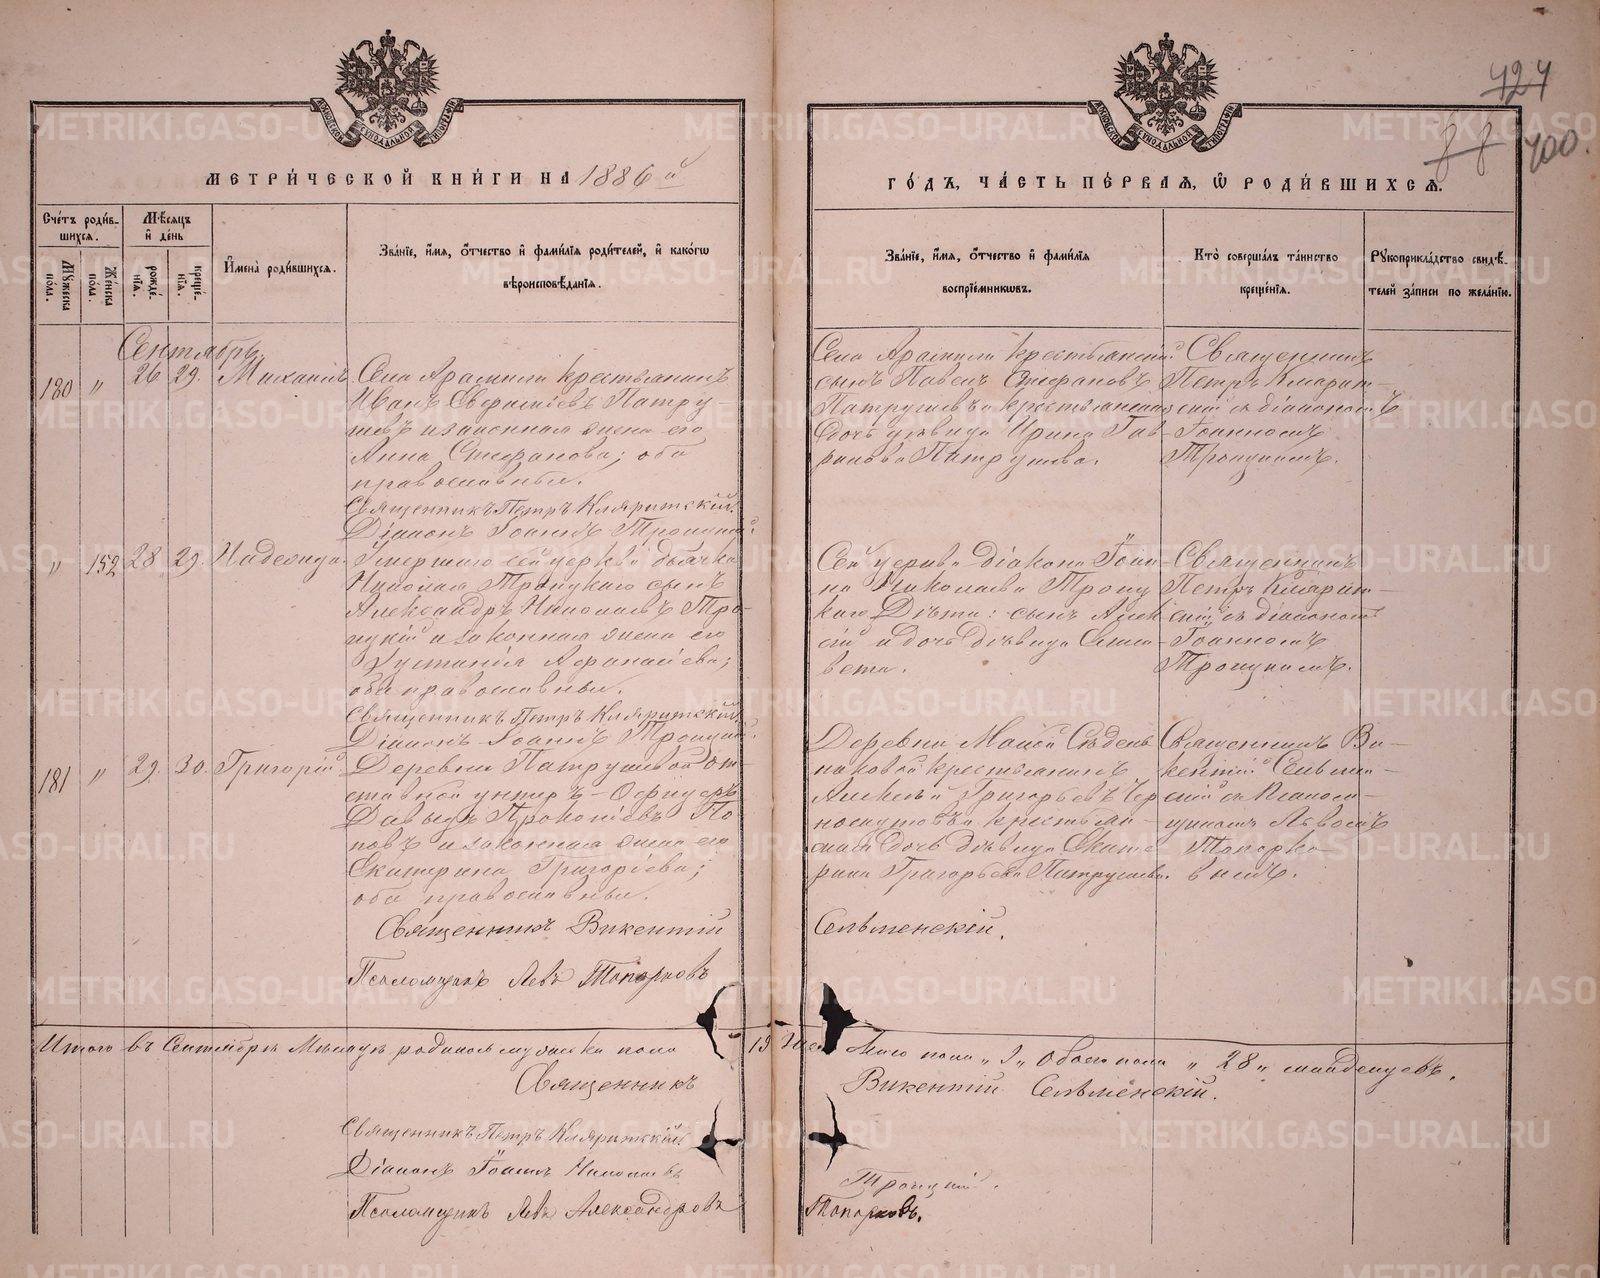 424
88 400.
МЕТРИ́ЧЕСКОЙ КНИ́ГИ НА 1886й
ГО́ДЪ, ЧА́СТЬ ПЕ́РВАЯ, Ѡ РОДИ́ВШИХСЯ.
Сче́тъ роди́вшихся.
Му́жеска по́ла.
Же́нска по́ла.
Мѣ́сяцъ и де́нь
рожде́нія.
креще́нія.
Имена̀ роди́вшихся.
Зва́ніе, и́мя, ѻ́тчество и фами́лія роди́телей, и како́гѡ
вѣроисповѣ́данія.
Зва́ніе, и́мя, ѻ́тчество и фами́лія
воспріе́мникѡвъ.
Кто̀ соверша́лъ та́инство
креще́нія.
Рꙋкоприкла́дство свидѣ́-
телей за́писи по жела́нію.
Сентябрь.
180 " 26 29. Михаилъ
Села Арамили крестьянинъ
Иванъ Патру-
шевъ и законная жена его
Анна Стефанова; оба
православные.
Священникъ Петръ Кляритскій.
Діаконъ Іоаннъ Троицкій.
Села Арамили крестьянскій
сынъ Павелъ Стефановъ
Патрушевъ и крестьянская
дочь дѣвица Ирина Гав-
Патрушева.
Священникъ
Петръ Кларит-
скій съ діакономъ
Іоанномъ
Троицкимъ.
" 152 28 29. Надежда.
Умершаго сей церкви дьячка
Николая Троицкаго сынъ
Александръ Николаевъ Тро-
ицкій и законная жена его
Афанасіева;
оба православные.
Священникъ Петръ Кляритскій.
Діаконъ Іоаннъ Троицкій.
Сей церкви діакона Іоан-
на Николаева Троиц-
каго дѣти: сынъ Алек-
сій и дочь дѣвица Елиса-
вета.
Священникъ
Петръ Кларит-
скій съ діакономъ
Іоанномъ
Троицкимъ.
181 " 29. 30. Григорій
Деревни Патрушевой от-
ставной унтеръ-Офицеръ
Давыдъ Прокопіевъ По-
повъ и законная жена его
Екатерина Григоріева;
оба православные.
Священникъ Викентій
Сельменскій.
Псаломщикъ Левъ Топорковъ
Деревни Малой Седель-
никовой крестьянинъ
Алексѣй Григорьевъ Чер-
носкутовъ и крестьян-
ская дочь дѣвица Екате-
рина Григорьева Патрушева.
Священникъ Ви-
кентій Сельмен-
скій съ Псалом-
щикомъ Львомъ
Топорко-
вымъ.
Итого въ Сентябрѣ Мѣсяцѣ родилось мужеска пола 19 скаго пола „ 9 „ Обоего пола „ 28 „ младенцевъ.
Священникъ Викентій Сельменскій.
Священникъ Петръ Кляритскій.
Діаконъ Іоаннъ Николаевъ Троицкій.
Псаломщикъ Левъ Александровъ Топорковъ.
METRIKI.GASO-URAL.RU